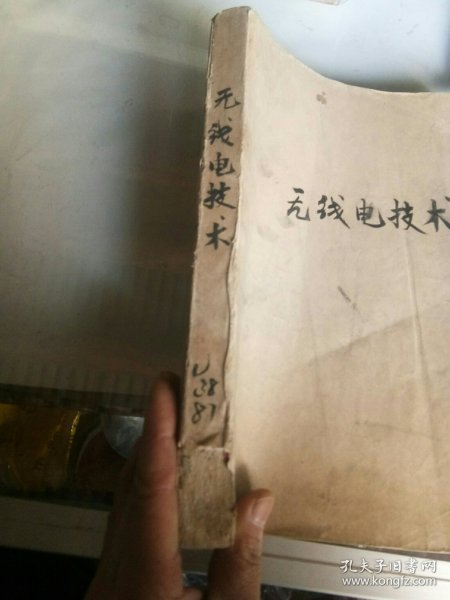 无线电技术
无线电技术
38
81
孔夫子旧书网
www.kongfz.com